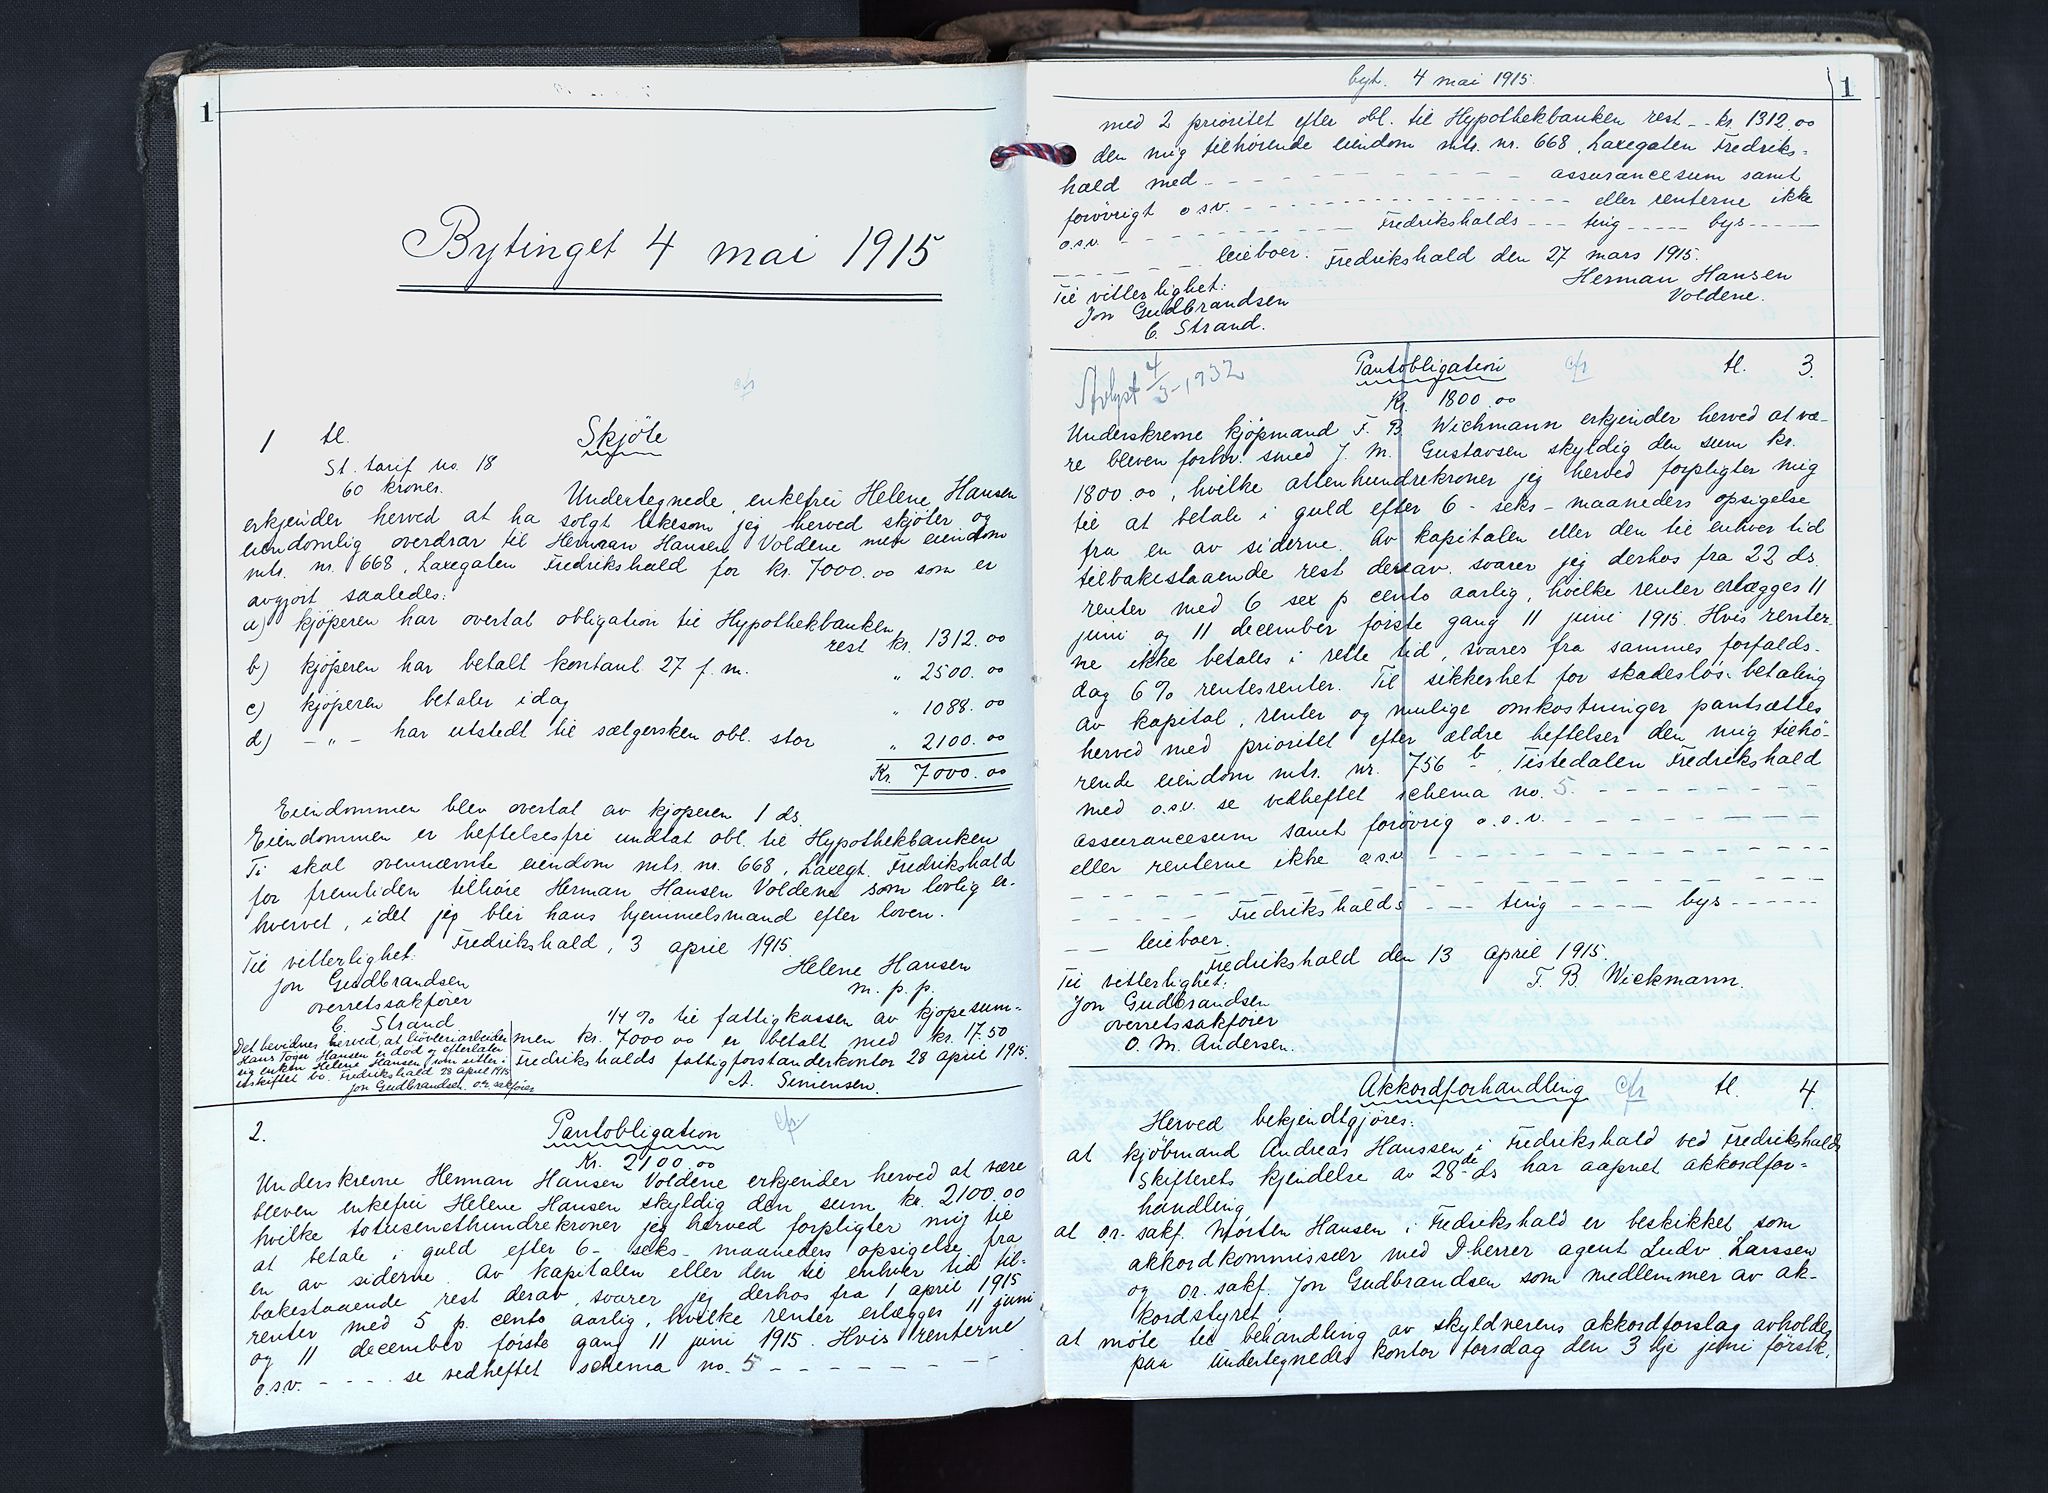 1
Bytinget 4 mai 1915
1 tl. Skjöte
St. tarif no. 18
60 kroner.
Undertegnede, enkefru Helene Hansen
erkjender herved at ha solgt likesom jeg herved skjöter og
eiendomlig overdrar til Herman Hansen Voldene min eiendom
mtr. nr. 668, Laxegaten Fredrikshald for kr. 7000.00 som er
avgjort saaledes:
a) kjöperen har overtat obligation til Hypothekbanken
rest kr. 1312.00
b) kjöperen har betalt kontant 27 f. m. " 2500.00
c) kjöperen betaler idag " 1088.00
d) - " - har utstedt til sælgersken obl. stor " 2100.00
Kr. 7000.00
Eiendommen blev overtat av kjöperen 1 ds.
Eiendommen er heftelsesfri undtat obl. til Hypothekbanken
Ti skal ovennævnte eiendom mtr. nr. 668, Laxegt. Fredrikshald
for fremtiden tilhöre Herman Hansen Voldene som lovlig er-
hvervet, idet jeg blir hans hjemmelsmand efter loven.
Fredrikshald, 3 april 1915.
Til vitterlighet:
Helene Hansen
m. p. p.
Jon Gudbrandsen
overretssakförer
C. Strand.
1/4 % til fattigkassen av kjöpesum-
men kr. 7000.00 er betalt med kr. 17.50
Fredrikshalds fattigforstanderkontor 28 april 1915.
A. Simensen.
Det bevidnes herved, at hövleriarbeider
Hans Toger Hansen er död og efterlater
sig enken Helene Hansen, som sitter i
uskiftet bo. Fredrikshald 28 april 1915
Jon Gudbrandsen. o.r. sakförer
2. Pantobligation
Kr. 2100.00
Underskrevne Herman Hansen Voldene erkjender herved at være
bleven enkefrü Helene Hansen skyldig den sum kr. 2100.00
hvilke totusenethundrekroner jeg herved forpligter mig til
at betale i guld efter 6- seks- maaneders opsigelse fra
en av siderne. Av kapitalen eller den til enhver tid til-
bakestaaende rest derav, svarer jeg derhos fra 1 april 1915
renter med 5 p. cento aarlig, hvilke renter erlægges 11 juni
og 11 december förste gang 11 juni 1915. Hvis renterne
o.s.v. - - - - se vedheftet schema no. 5 - - - - - - - -
byt. 4 mai 1915. 1
med 2 prioritet efter obl. til Hypothekbanken rest - - kr. 1312.00
den mig tilhörende eiendom mtr. nr. 668, Laxegaten Fredriks-
hald med - - - - - - - - - - assurancesum samt
forövrigt o.s.v. - - - - - - - - - - eller renterne ikke
o.s.v. - - - - - - - - Fredrikshalds - - - ting - - - - bys - - - -
- - - - - - leieboer. Fredrikshald den 27 mars 1915.
Til vitterlighet:
Herman Hansen
Voldene.
Jon Gudbrandsen
C. Strand.
Avlyst 4/3-1932
Pantobligation tl. 3.
Kr. 1800.00
Underskrevne kjöpmand F. B. Wichmann erkjender herved at væ-
re bleven forhv. smed J. M. Gustavsen skyldig den sum kr.
1800.00, hvilke attenhundrekroner jeg herved forpligter mig
til at betale i guld efter 6 - seks - maaneders opsigelse
fra en av siderne. Av kapitalen eller den til enhver tid
tilbakestaaende rest derav. svarer jeg derhos fra 22 ds.
renter med 6 sex p cento aarlig, hvilke renter erlægges 11
juni og 11 december förste gang 11 juni 1915. Hvis renter-
ne ikke betales i rette tid, svares fra sammes forfalds-
dag 6% rentesrenter. Til sikkerhet for skadeslös betaling
av kapital, renter og mulige omkostninger pantsættes
herved med prioritet efter ældre heftelser den mig tilhö-
rende eiendom mtr. nr. 756 b, Tistedalen Fredrikshald
med o.s.v. se vedheftet schema no. 5. - - - - - - - -
assurancesum samt forövrig o.s.v. - - - - - - - - -
eller renterne ikke o.s.v. - - - - - - - - - - - -
- - - - - - Fredrikshalds - - - ting - - - - bys - - - - - -
- - leieboer.
Fredrikshald den 13 april 1915.
Til vitterlighet:
F. B. Wickmann.
Jon Gudbrandsen
overretssakförer
O. M. Andersen.
Akkordforhandling tl. 4.
Herved bekjendtgjöres:
at kjöbmand Andreas Hanssen i Fredrikshald ved Fredrikshalds
skifterets kjendelse av 28de ds har aapnet akkordfor-
handling,
at o.r. sakf. Morten Hansen i Fredrikshald er beskikket som
akkordkommissær med D'herrer agent Ludv. Larssen
og o.r. sakf. Jon Gudbrandsen som medlemmer av ak-
kordstyret,
at möte til behandling av skyldnerens akkordforslag avholdes
paa undertegnedes kontor torsdag den 3 dje juni förstk.